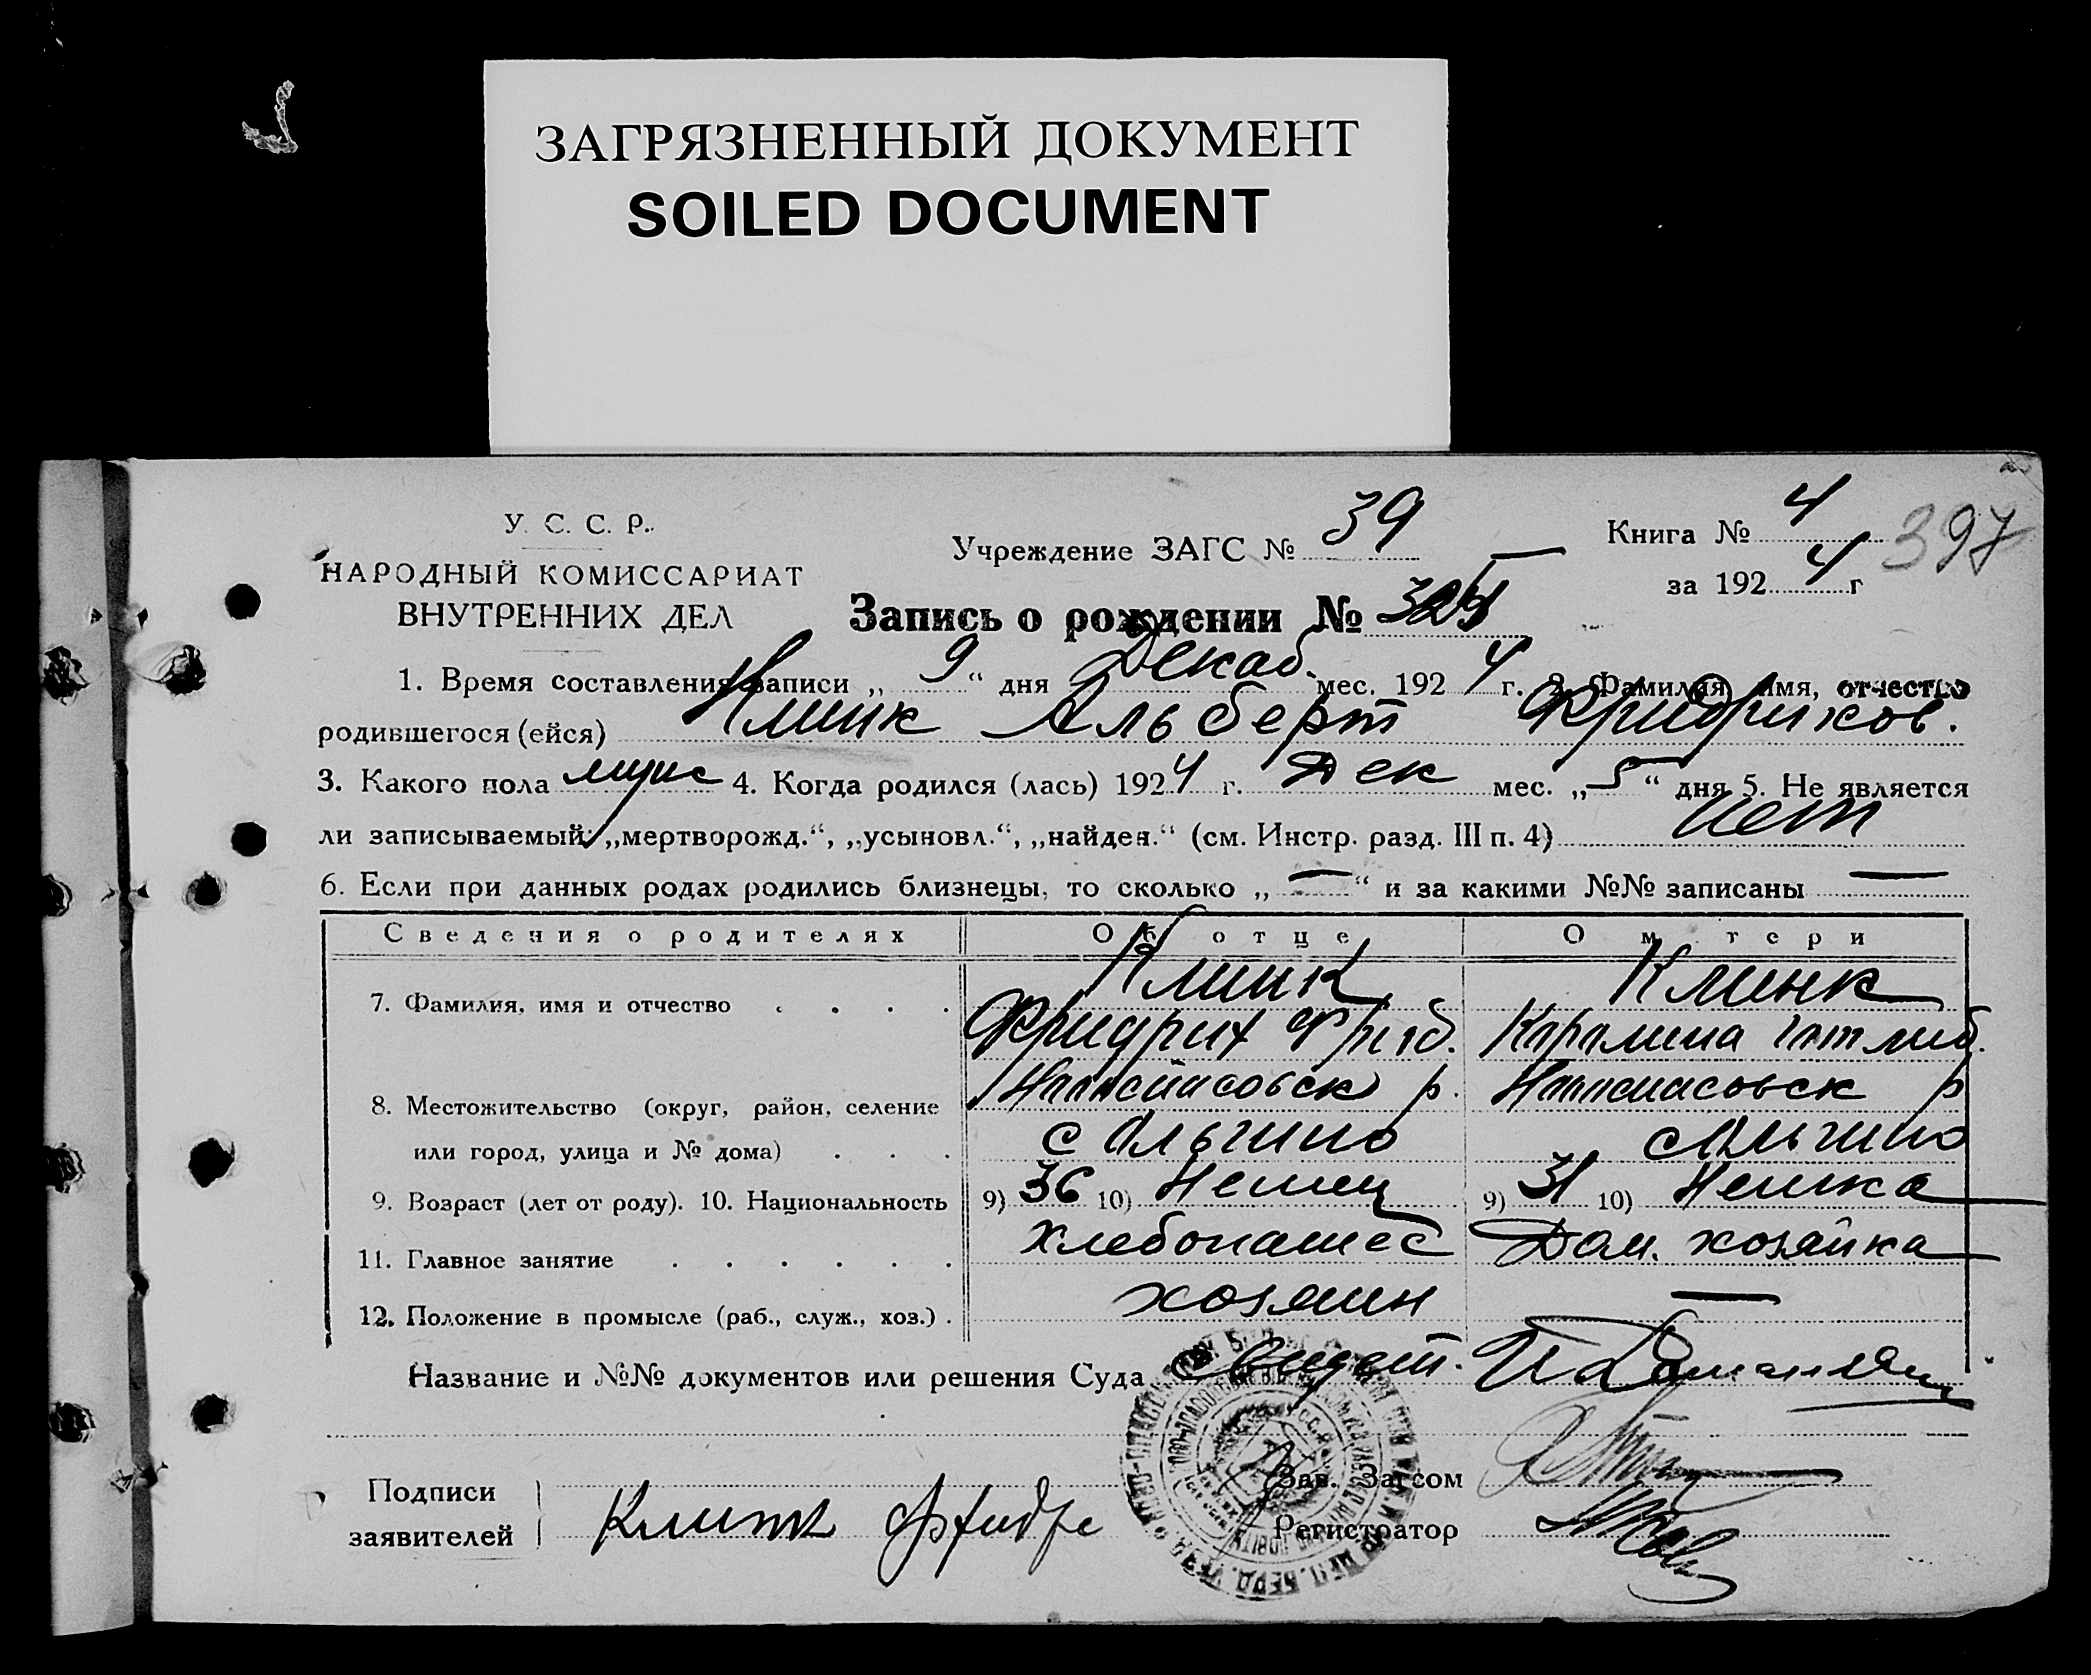 ЗАГРЯЗНЕННЫЙ ДОКУМЕНТ
SOILED DOCUMENT
У. С. С. Р.
НАРОДНЫЙ КОМИССАРИАТ
ВНУТРЕННИХ ДЕЛ
Учреждение ЗАГС № 39
Книга № 4
397
за 192 4 г
Запись о рождении №
1. Время составления записи „ 9 “ дня Декаб. мес. 192 4 г. 2. Фамилия, имя, отчество
родившегося (ейся) Клинк Альберт Фридрихов.
3. Какого пола муж 4. Когда родился (лась) 192 4 г. Дек мес. „ 5 “ дня 5. Не является
ли записываемый: „мертворожд.“, „усыновл.“, „найден.“ (см. Инстр. разд. III п. 4) нет
6. Если при данных родах родились близнецы, то сколько „ — “ и за какими №№ записаны —
Сведения о родителях Об отце О матери
7. Фамилия, имя и отчество . . . . Клинк Клинк
Фридрих Фрид. Каролина Готлиб.
8. Местожительство (округ, район, селение р. р
или город, улица и № дома) . . . с Ольгино с Ольгино
9. Возраст (лет от роду). 10. Национальность 9) 36 10) Немец 9) 31 10) Немка
11. Главное занятие . . . . . . Хлебопашес Дом. хозяйка
12. Положение в промысле (раб., служ., хоз.) . хозяин —
Название и №№ документов или решения Суда
Подписи
заявителей
Клинк
Зав. Загсом
Регистратор